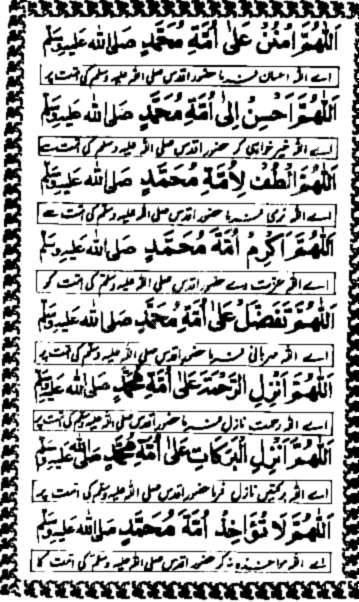 اَللّٰهُمَّ امْنُنْ عَلٰى اُمَّةِ مُحَمَّدٍ صَلَى الله عَلَيْهِ وَسَلَّم
اے اللہ احسان فرما حضور اقدس صلی اللہ علیہ وسلم کی امت پر
اَللّٰهُمَّ اَحْسِنْ اِلٰى اُمَّةِ مُحَمَّدٍ صَلَى الله عَلَيْهِ وَسَلَّم
اے اللہ خیر خواہی کر حضور اقدس صلی اللہ علیہ وسلم کی امت سے
اَللّٰهُمَّ الْطُفْ لِاُمَّةِ مُحَمَّدٍ صَلَى الله عَلَيْهِ وَسَلَّم
اے اللہ نرمی فرما حضور اقدس صلی اللہ علیہ وسلم کی امت سے
اَللّٰهُمَّ اَكْرِمْ اُمَّةَ مُحَمَّدٍ صَلَى الله عَلَيْهِ وَسَلَّم
اے اللہ عزت دے حضور اقدس صلی اللہ علیہ وسلم کی امت کو
اَللّٰهُمَّ تَفَضَّلْ عَلٰى اُمَّةِ مُحَمَّدٍ صَلَى الله عَلَيْهِ وَسَلَّم
اے اللہ مہربانی فرما حضور اقدس صلی اللہ علیہ وسلم کی امت پر
اَللّٰهُمَّ اَنْزِلِ الرَّحْمَةَ عَلٰى اُمَّةِ مُحَمَّدٍ صَلَى الله عَلَيْهِ وَسَلَّم
اے اللہ رحمت نازل فرما حضور اقدس صلی اللہ علیہ وسلم کی امت پر
اَللّٰهُمَّ اَنْزِلِ الْبَرَكَاتِ عَلٰى اُمَّةِ مُحَمَّدٍ صَلَى الله عَلَيْهِ وَسَلَّم
اے اللہ برکتیں نازل فرما حضور اقدس صلی اللہ علیہ وسلم کی امت پر
اَللّٰهُمَّ لَا تُؤَاخِذْ اُمَّةَ مُحَمَّدٍ صَلَى الله عَلَيْهِ وَسَلَّم
اے اللہ مواخذہ نہ کر حضور اقدس صلی اللہ علیہ وسلم کی امت کا